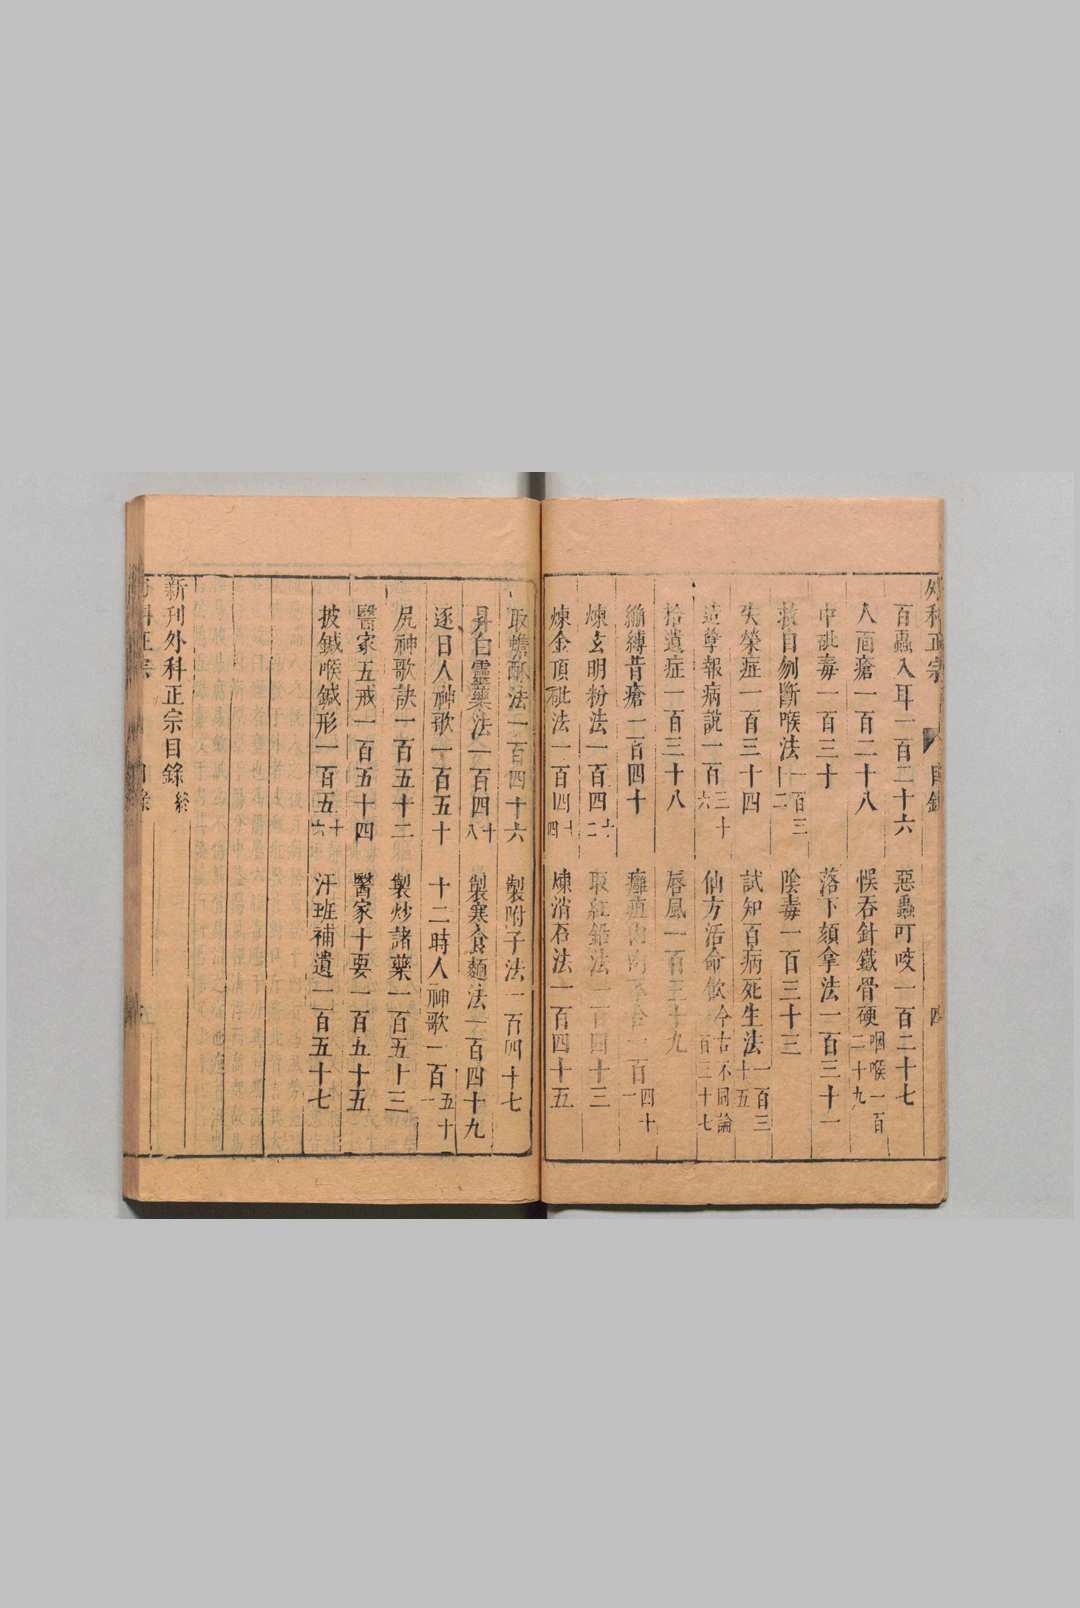 外科正宗 目錄 四
百蟲入耳一百二十六 惡蟲叮咬一百二十七
人面瘡一百二十八 悞吞針鐵骨硬咽喉一百二十九
中砒毒一百三十 落下頦拿法一百三十一
救自刎斷喉法一百三十二 陰毒一百三十三
失榮症一百三十四 試知百病死生法一百三十五
造孽報病說一百三十六 仙方活命飲今古不同論一百三十七
拾遺症一百三十八 唇風一百三十九
縧縛昔瘡一百四十 一百四十一
煉玄明粉法一百四十二 取紅鉛法一百四十三
煉金頂砒法一百四十四 煉消石法一百四十五
取蟾酥法一百四十六 製附子法一百四十七
昇白靈藥法一百四十八 製寒食麵法一百四十九
逐日人神歌一百五十 十二時人神歌一百五十一
尻神歌訣一百五十二 製炒諸藥一百五十三
醫家五戒一百五十四 醫家十要一百五十五
披鍼喉鍼形一百五十六 汗班補遺一百五十七
新刊外科正宗目錄終